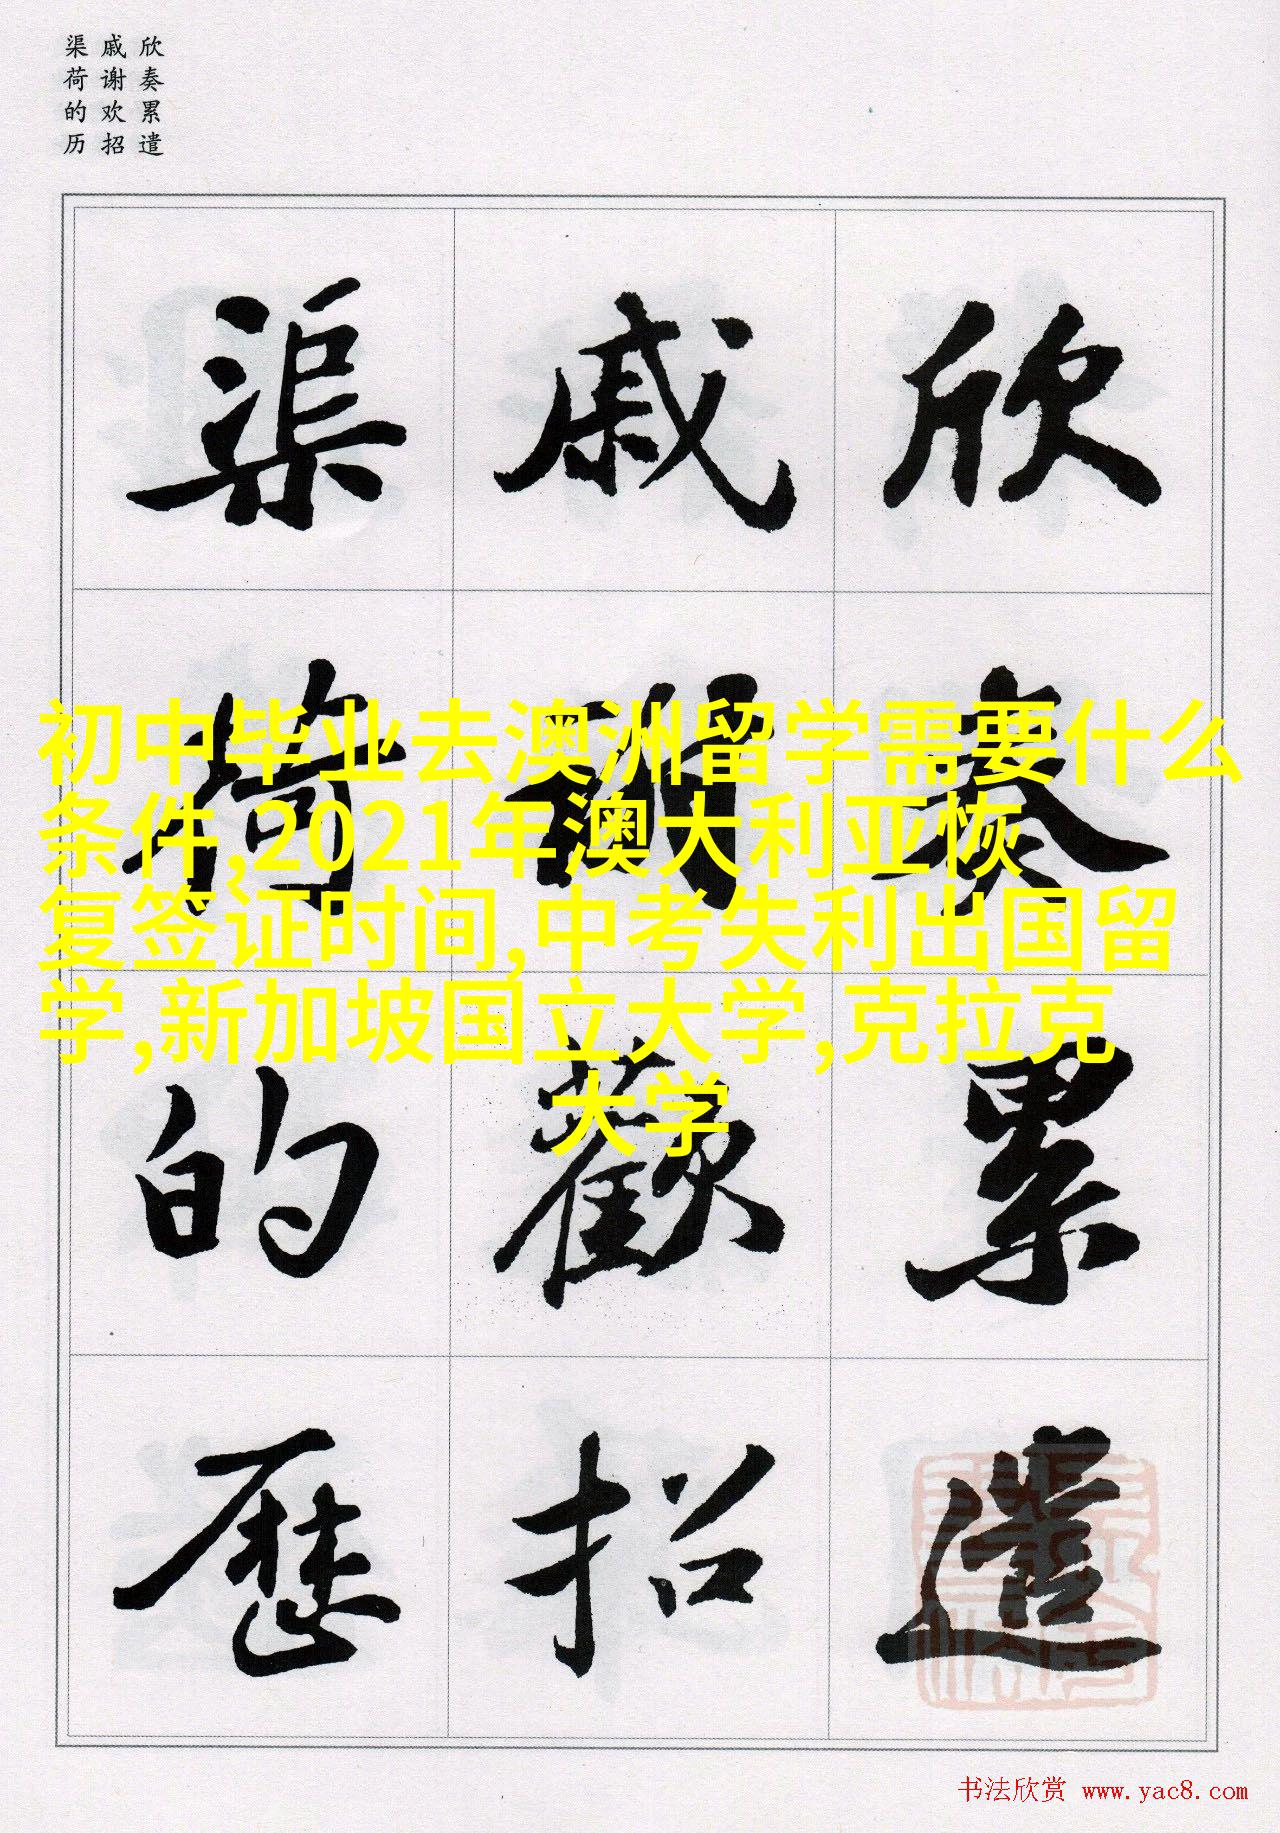 欣奏累遣
戚谢欢招
渠荷的历
欣奏累遣
戚謝歡招
渠荷的歷
初中毕业去澳洲留学需要什么
条件,2021年澳大利亚恢
复签证时间,中考失利出国留
学,新加坡国立大学,克拉克
大学
书法欣赏 www.yac8.com